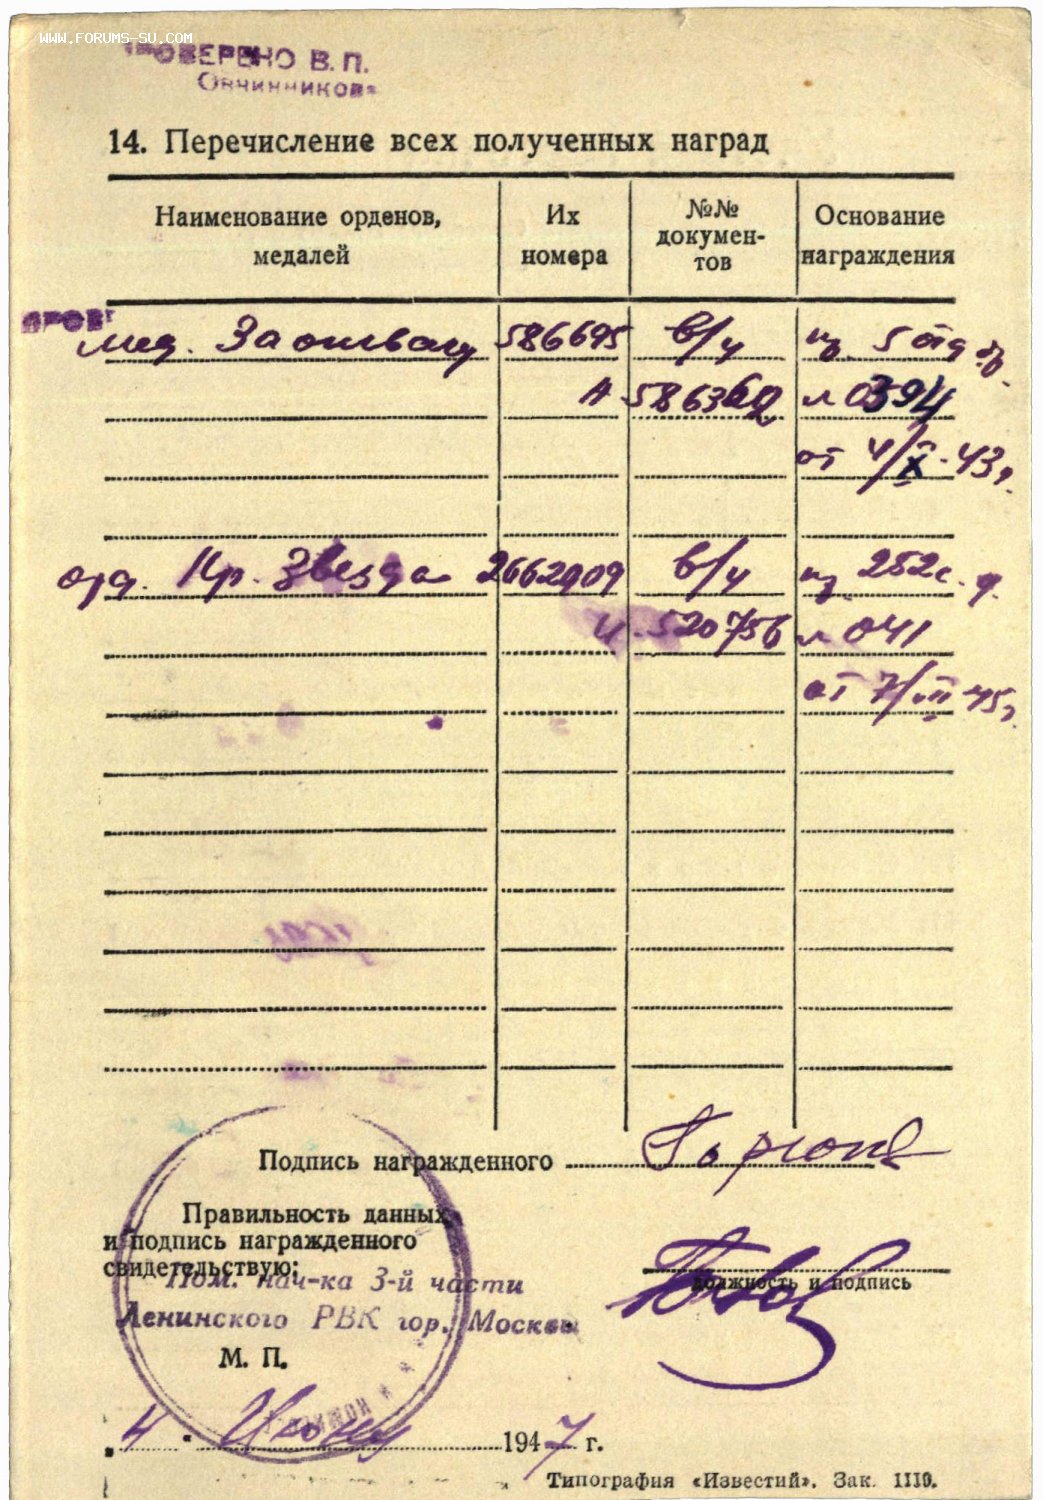 WWW.FORUMS-SU.COM
ПРОВЕРЕНО В. П.
Овчинникова
14. Перечисление всех полученных наград
Наименование орденов, медалей
Их номера
№№ документов
Основание награждения
ПРОВ
мед. За отвагу 586695 в/ч пр. 5 отд бр.
А 586362 № 0394
от 4/X-43г.
орд. Кр. Звезда 2662909 в/ч пр. 252 с. д.
И. 520756 № 041
от 7/VII 45г.
Подпись награжденного
Правильность данных
и подпись награжденного
свидетельствую:
должность и подпись
Пом. нач-ка 3-й части
Ленинского РВК гор. Москвы
М. П.
4 Июня 1947 г.
Типография «Известий». Зак. 1110.